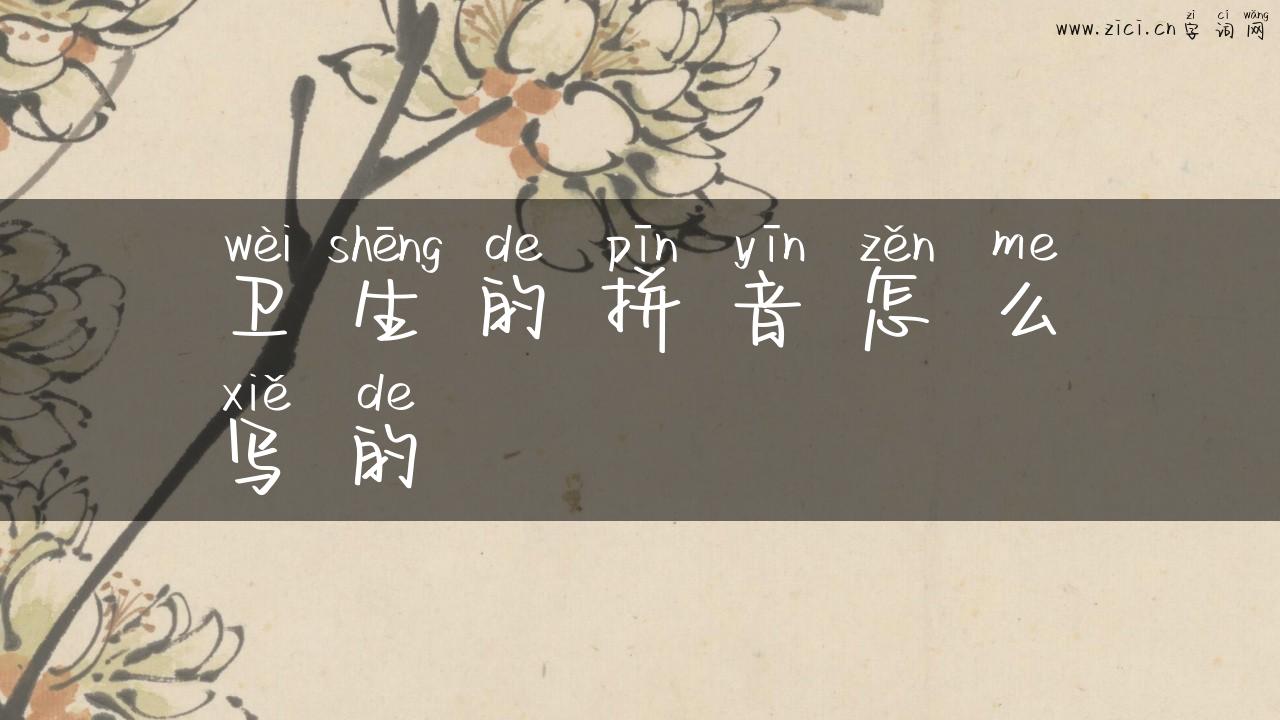 zì cí wǎng
www.zici.cn 字 词 网
wèi shēng de pīn yīn zěn me
卫 生 的 拼 音 怎 么
xiě de
写 的